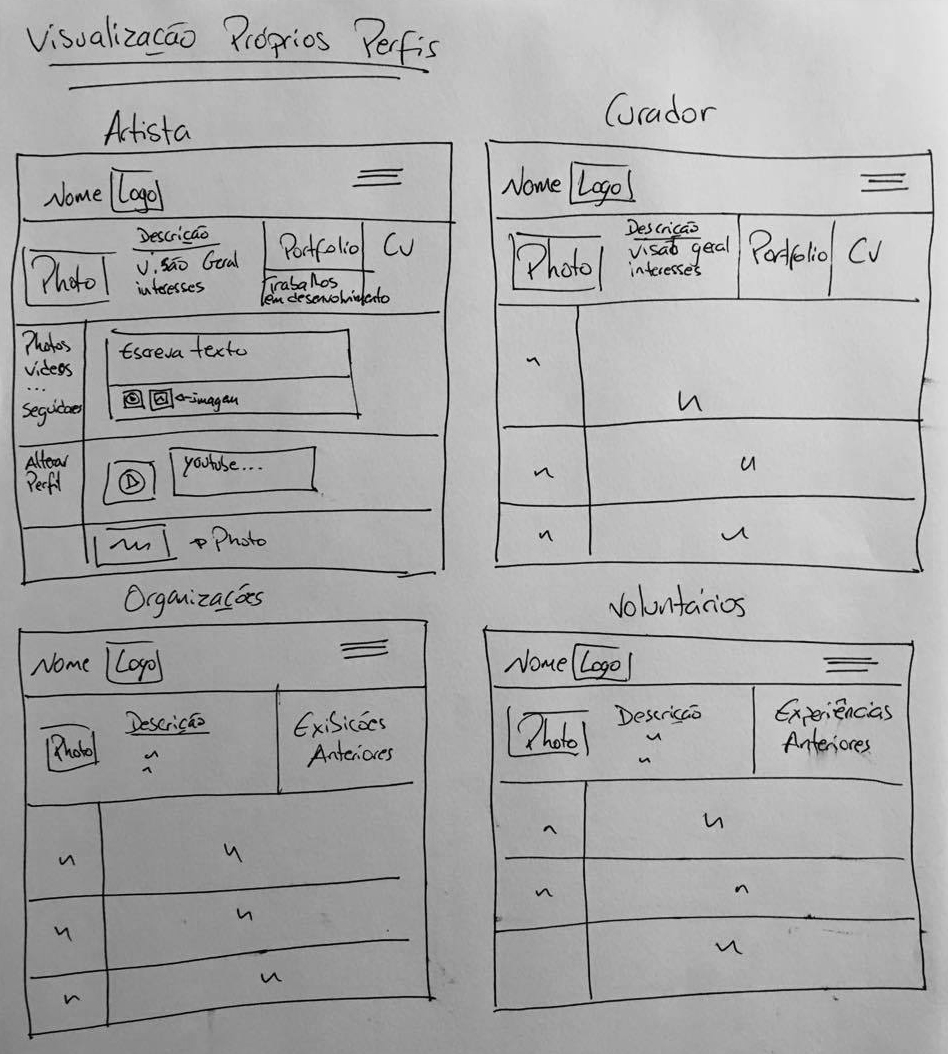 Visualização Próprios Perfis
Artista
Nome Logo
Photo
Descrição
Visão Geral
interesses
Portfolio
CV
Trabalhos
em desenvolvimento
Photos
Vídeos
...
Seguidores
Escreva texto
imagem
Alterar
Perfil
youtube...
Photo
Curador
Nome Logo
Photo
Descrição
Visão geral
interesses
Portfolio
CV
Organizações
Nome Logo
Photo
Descrição
Exibicões
Anteriores
Voluntários
Nome Logo
Photo
Descrição
Experiências
Anteriores